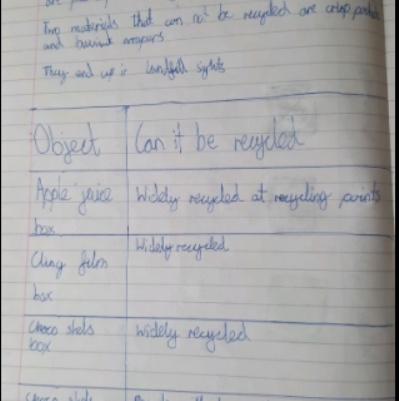 Two materials that can not be recycled are crisp packets
and biscuit wrapers
They end up in landfill sights
Object Can it be recycled
Apple juice Widely recycled at recycling points
box
Cling film Widely recycled
box
Choco shels Widely recycled
box
Choco shels